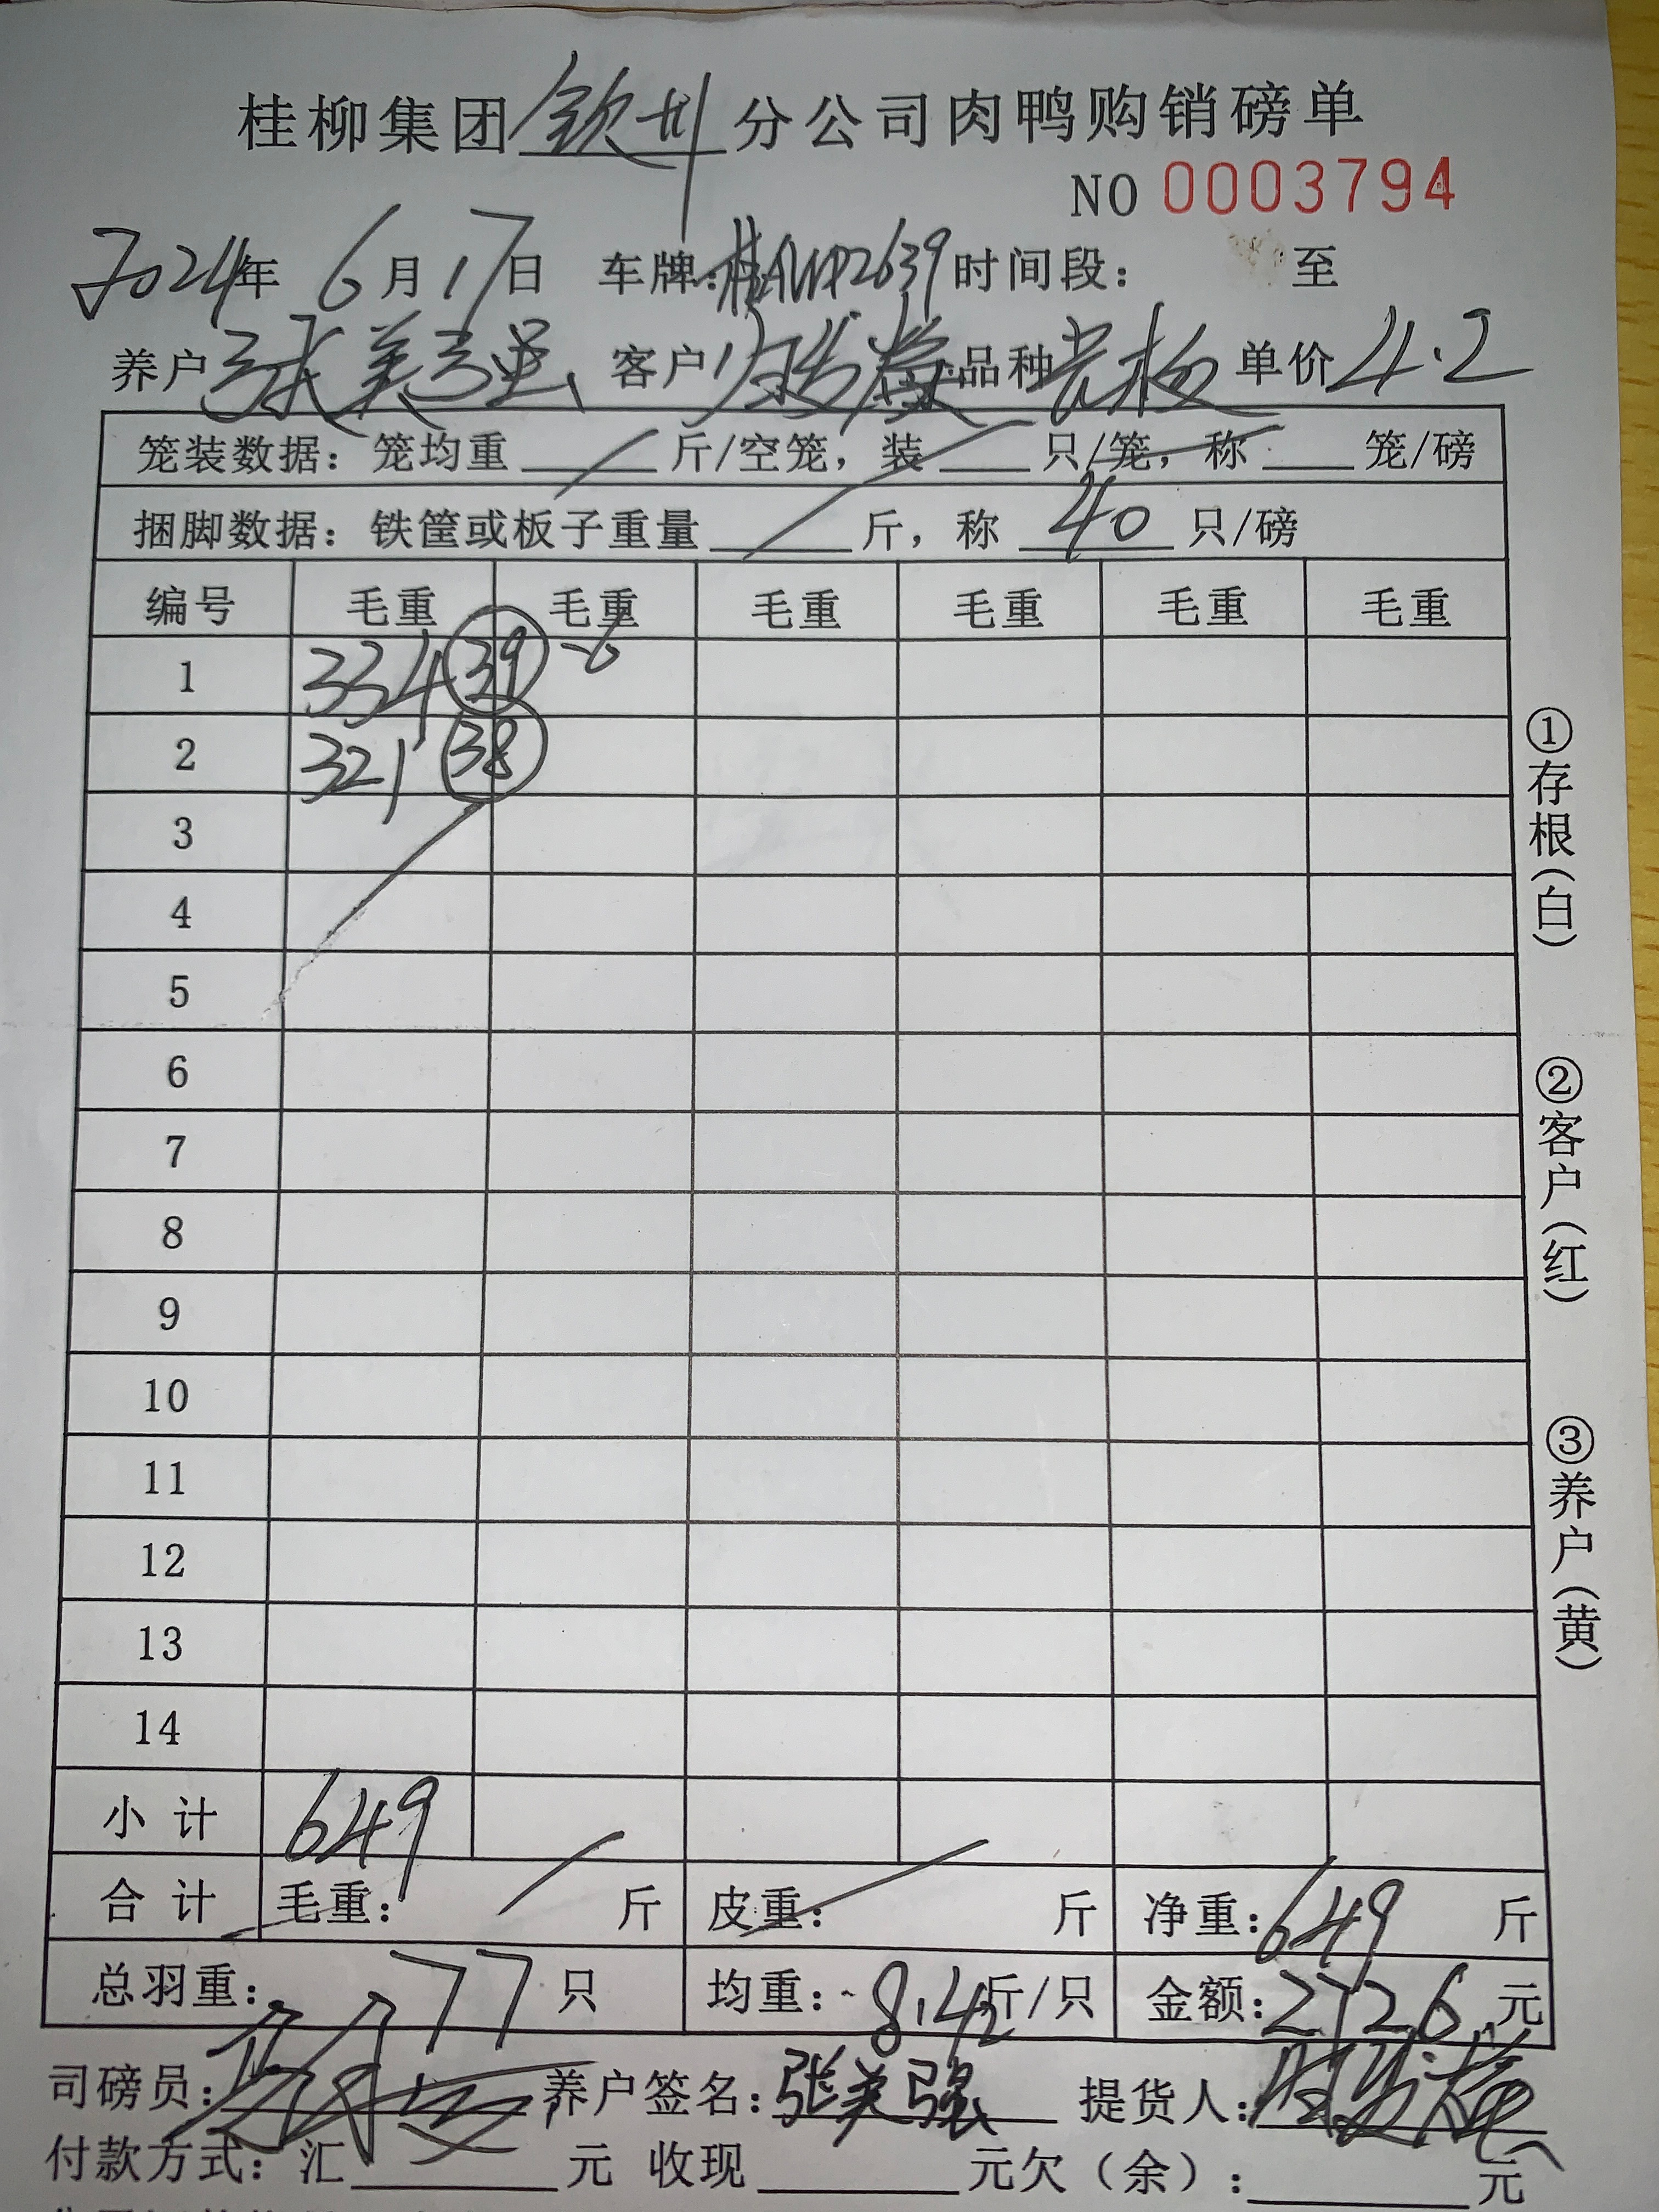 桂柳集团钦州分公司肉鸭购销磅单
NO 0003794
2024年 6月17日 车牌: 2639 时间段: 至
养户 张美强 客户 品种 单价 4.2
笼装数据: 笼均重 斤/空笼, 装 只/笼, 称 笼/磅
捆脚数据: 铁筐或板子重量 斤, 称 40 只/磅
编号 毛重 毛重 毛重 毛重 毛重 毛重
1 334 39 -6
2 321 38
3
4
5
6
7
8
9
10
11
12
13
14
小计 649
合计 毛重: 斤 皮重: 斤 净重: 649 斤
总羽重: 77 只 均重: 8.42 斤/只 金额: 2726 元
司磅员: 养户签名: 张美强 提货人:
付款方式: 汇 元 收现 元欠(余): 元
①存根(白)
②客户(红)
③养户(黄)